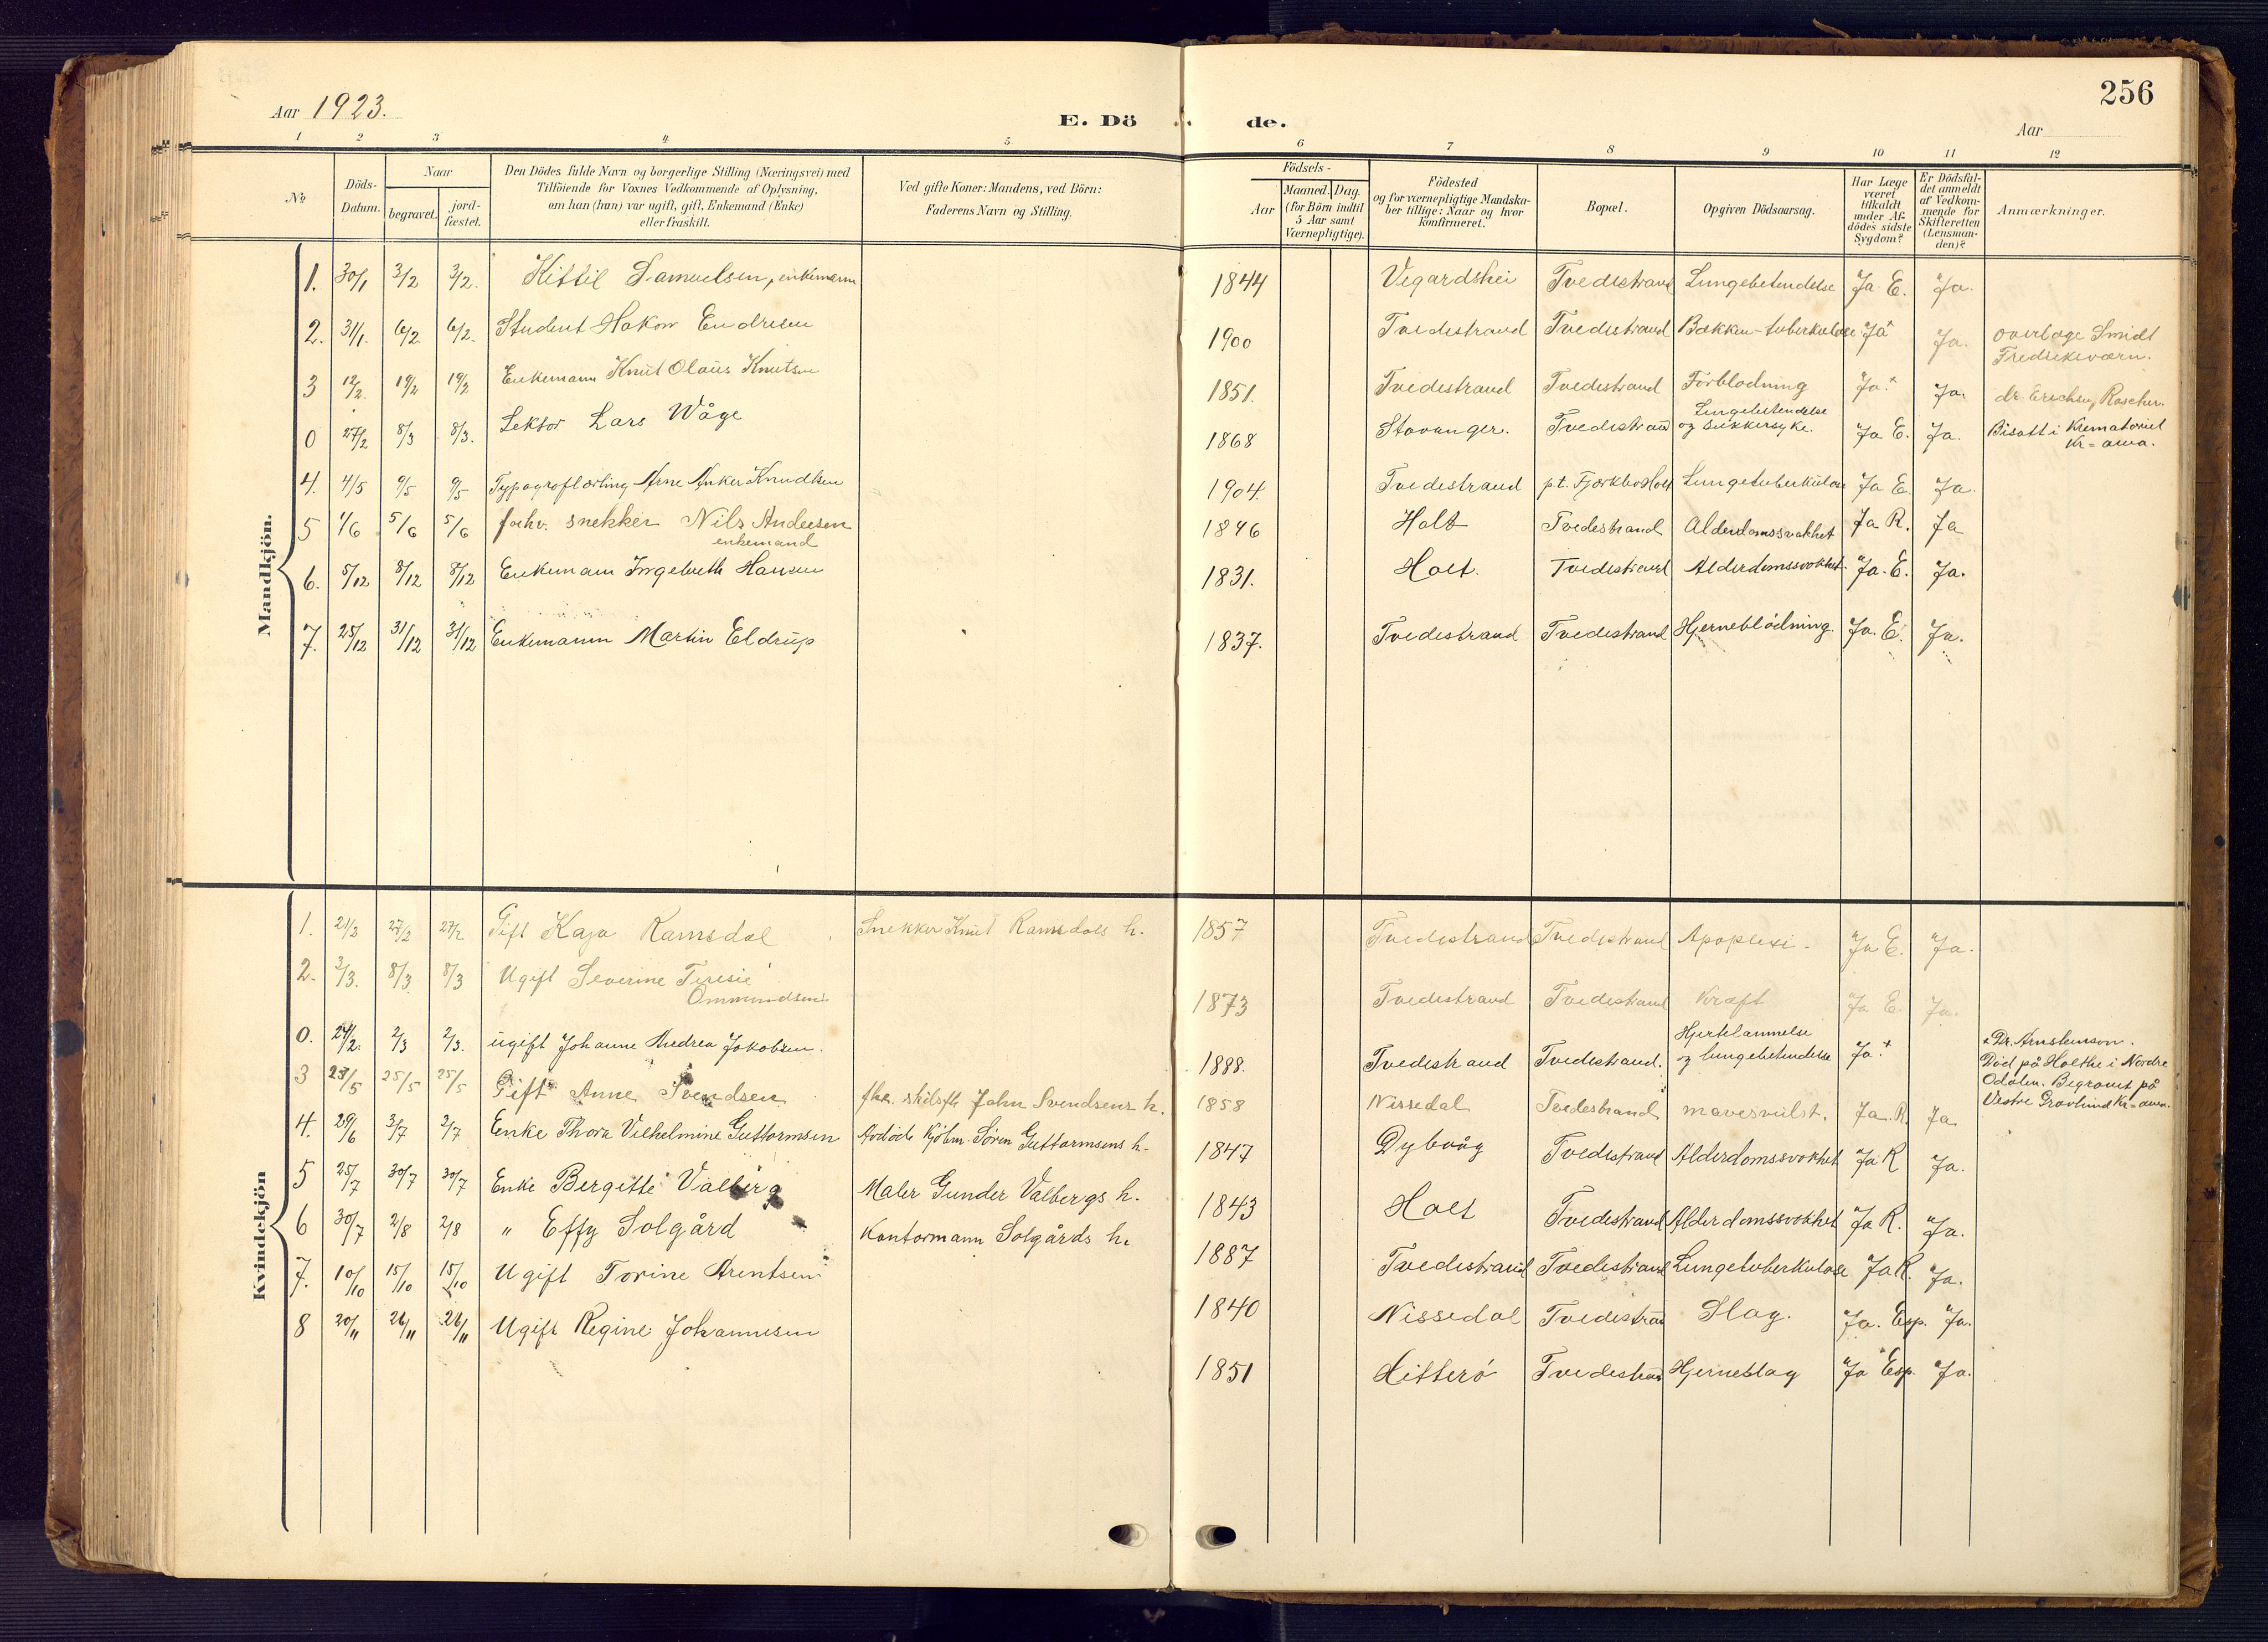 Aar 1923.
E. Döde.
256
Aar
1 2 3 4 5 6 7 8 9 10 11 12
№
Döds-Datum.
Naar
begravet.
jord-fæstet.
Den Dödes fulde Navn og borgerlige Stilling (Næringsvei) med
Tilföiende for Voxnes Vedkommende af Oplysning,
om han (hun) var ugift, gift, Enkemand (Enke)
eller fraskilt.
Ved gifte Koner: Mandens, ved Börn:
Faderens Navn og Stilling.
Födsels-
Aar
Maaned. Dag.
(for Börn indtil
5 Aar samt
Værnepligtige).
Födested
og for værnepligtige Mandska-
ber tillige: Naar og hvor
konfirmeret.
Bopæl.
Opgiven Dödsaarsag.
Har Læge
været
tilkaldt
under Af-
dödes sidste
Sygdom?
Er Dödsfal-
det anmeldt
af Vedkom-
mende for
Skifteretten
(Lensman-
den)?
Anmærkninger.
Mandkjön.
1. 30/1 3/2 3/2. Kittil Samuelsen, enkemann 1844 Vegardshei Tvedestrand Lungebetendelse Ja E. Ja.
2. 31/1. 6/2 6/2. Student Hakon Endresen 1900 Tvedestrand Tvedestrand Bækken-tuberkulose Ja+ Ja. overlæge Smidt
Frederiksværn.
3 12/2. 19/2 19/2 Enkemann Knut Olaus Knutsen 1851. Tvedestrand Tvedestrand Forblodning Ja.+ Ja. dr. Erichsen,
0 27/2 8/3 8/3. Lektor Lars Wåge 1868 Stavanger. Tvedestrand Lungebetendelse
og sukkersyke. Ja E. Ja. Bisatt i Krematoriet
Kr=ania.
4. 4/5 9/5 9/5 Typograflærling Arne Anker Knudtsen 1904. Tvedestrand p.t. Holt Lungetuberkulose Ja E. Ja.
5 1/6 5/6 5/6 forhv. snekker Nils Andersen
enkemand 1846 Holt Tvedestrand Alderdomssvakhet Ja R. Ja
6. 5/12 8/12 8/12 Enkemann Ingebreth Hansen 1831. Holt. Tvedestrand Alderdomssvakhet. Ja. E. Ja.
7. 25/12 31/12 31/12 Enkemann Martin Eldrup 1837. Tvedestrand Tvedestrand Hjerneblödning. Ja. E. Ja.
Kvindekjön
1. 21/2 27/2 27/2 Gift Kaja Ramsdal Snekker Knut Ramsdals h. 1857 Tvedestrand Tvedestrand Apoplexi. Ja E. Ja.
2. 3/3. 8/3 8/3 Ugift Severine Teresie
Ommundsen 1873 Tvedestrand Tvedestrand Kræft Ja E. Ja.
0. 24/2. 2/3 2/3. ugift Johanne Andrea Jakobsen. 1888. Tvedestrand Tvedestrand. Hjertelammelse
og lungebetendelse Ja.+ + Dr. Arnstenson.
Död på Holthe i Nordre
Odalen. Begravet på
Vestre Gravlund Kr=ania.
3 23/5 25/5 25/5 Gift Anne Svendsen fhv. skibsf. John Svendsens h. 1858 Nissedal Tvedestrand mavesvulst. Ja. R. Ja
4. 29/6 3/7 3/7 Enke Thora Vilhelmine Guttormsen Avdöde Kjöbm. Søren Guttormsens h. 1847 Dybvåg Tvedestrand Alderdomssvakhet Ja R Ja.
5 25/7 30/7 30/7 Enke Bergitte Valberg Maler Gunder Valbergs h. 1843 Holt Tvedestrand Alderdomssvakhet Ja R. Ja.
6 30/7 2/8 2/8 " Effy Solgård Kontormann Solgårds h. 1887 Tvedestrand Tvedestrand Lungetuberkulose Ja R. Ja.
7. 10/10 15/10 15/10 Ugift Torine Arentsen 1840 Nissedal Tvedestrand Slag. Ja. Esp. Ja.
8 20/11 26/11 26/11 Ugift Regine Johannesen 1851 Hitterö Tvedestrand Hjerneslag Ja Esp. Ja.